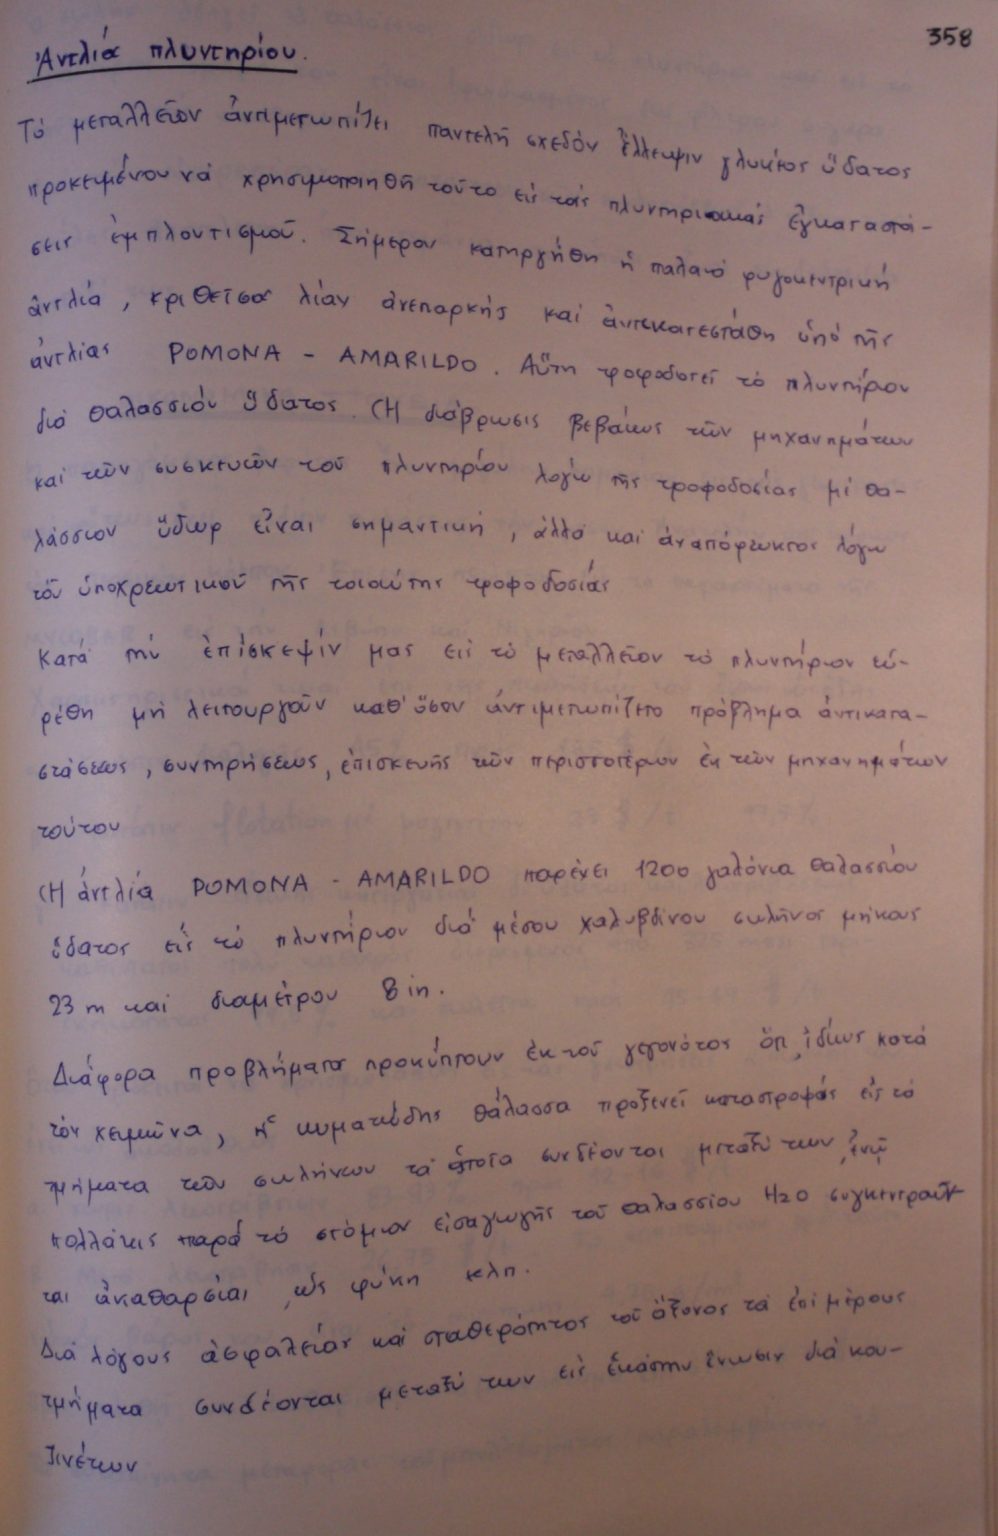 358
Ἀντλία πλυντηρίου.
Τό μεταλλεῖον ἀντιμετωπίζει παντελῆ σχεδόν ἔλλειψιν γλυκέος ὕδατος
προκειμένου νά χρησιμοποιηθῆ τοῦτο εἰς τάς πλυντηριακάς ἐγκαταστά-
σεις ἐμπλουτισμοῦ. Σήμερον κατηργήθη ἡ παλαιά φυγοκεντρική
ἀντλία, κριθεῖσα λίαν ἀνεπαρκής καί ἀντικατεστάθη ὑπό τῆς
ἀντλίας POMONA - AMARILDO. Αὕτη τροφοδοτεῖ τό πλυντήριον
διά θαλασσίου ὕδατος. (Η διάβρωσις βεβαίως τῶν μηχανημάτων
καί τῶν συσκευῶν τοῦ πλυντηρίου λόγω τῆς τροφοδοσίας μέ θα-
λάσσιον ὕδωρ εἶναι σημαντική, ἀλλά καί ἀναπόφευκτος λόγω
τοῦ ὑποχρεωτικοῦ τῆς τοιαύτης τροφοδοσίας
Κατά τήν ἐπίσκεψίν μας εἰς τό μεταλλεῖον τό πλυντήριον εὑ-
ρέθη μή λειτουργοῦν καθ' ὅσον ἀντιμετωπίζετο πρόβλημα ἀντικατα-
στάσεως, συντηρήσεως, ἐπισκευῆς τῶν περισσοτέρων ἐκ τῶν μηχανημάτων
τούτου
(Η ἀντλία POMONA - AMARILDO παρέχει 1200 γαλόνια θαλασσίου
ὕδατος εἰς τό πλυντήριον διά μέσου χαλυβδίνου σωλῆνος μήκους
23 m καί διαμέτρου 8 in.
Διάφορα προβλήματα προκύπτουν ἐκ τοῦ γεγονότος ὅτι, ἰδίως κατά
τόν χειμῶνα, ἡ κυματώδης θάλασσα προξενεῖ καταστροφάς εἰς τά
τμήματα τῶν σωλήνων τά ὁποῖα συνδέονται μεταξύ των, ἐνῶ
πολλάκις παρά τό στόμιον εἰσαγωγῆς τοῦ θαλασσίου H2O συγκεντροῦν
ται ἀκαθαρσίαι, ὡς φύκη κλπ.
Διά λόγους ἀσφαλείας καί σταθερότητος τοῦ ἄξονος τά ἐπί μέρους
τμήματα συνδέονται μεταξύ των εἰς ἑκάστην ἕνωσιν διά κου-
ζινέτων